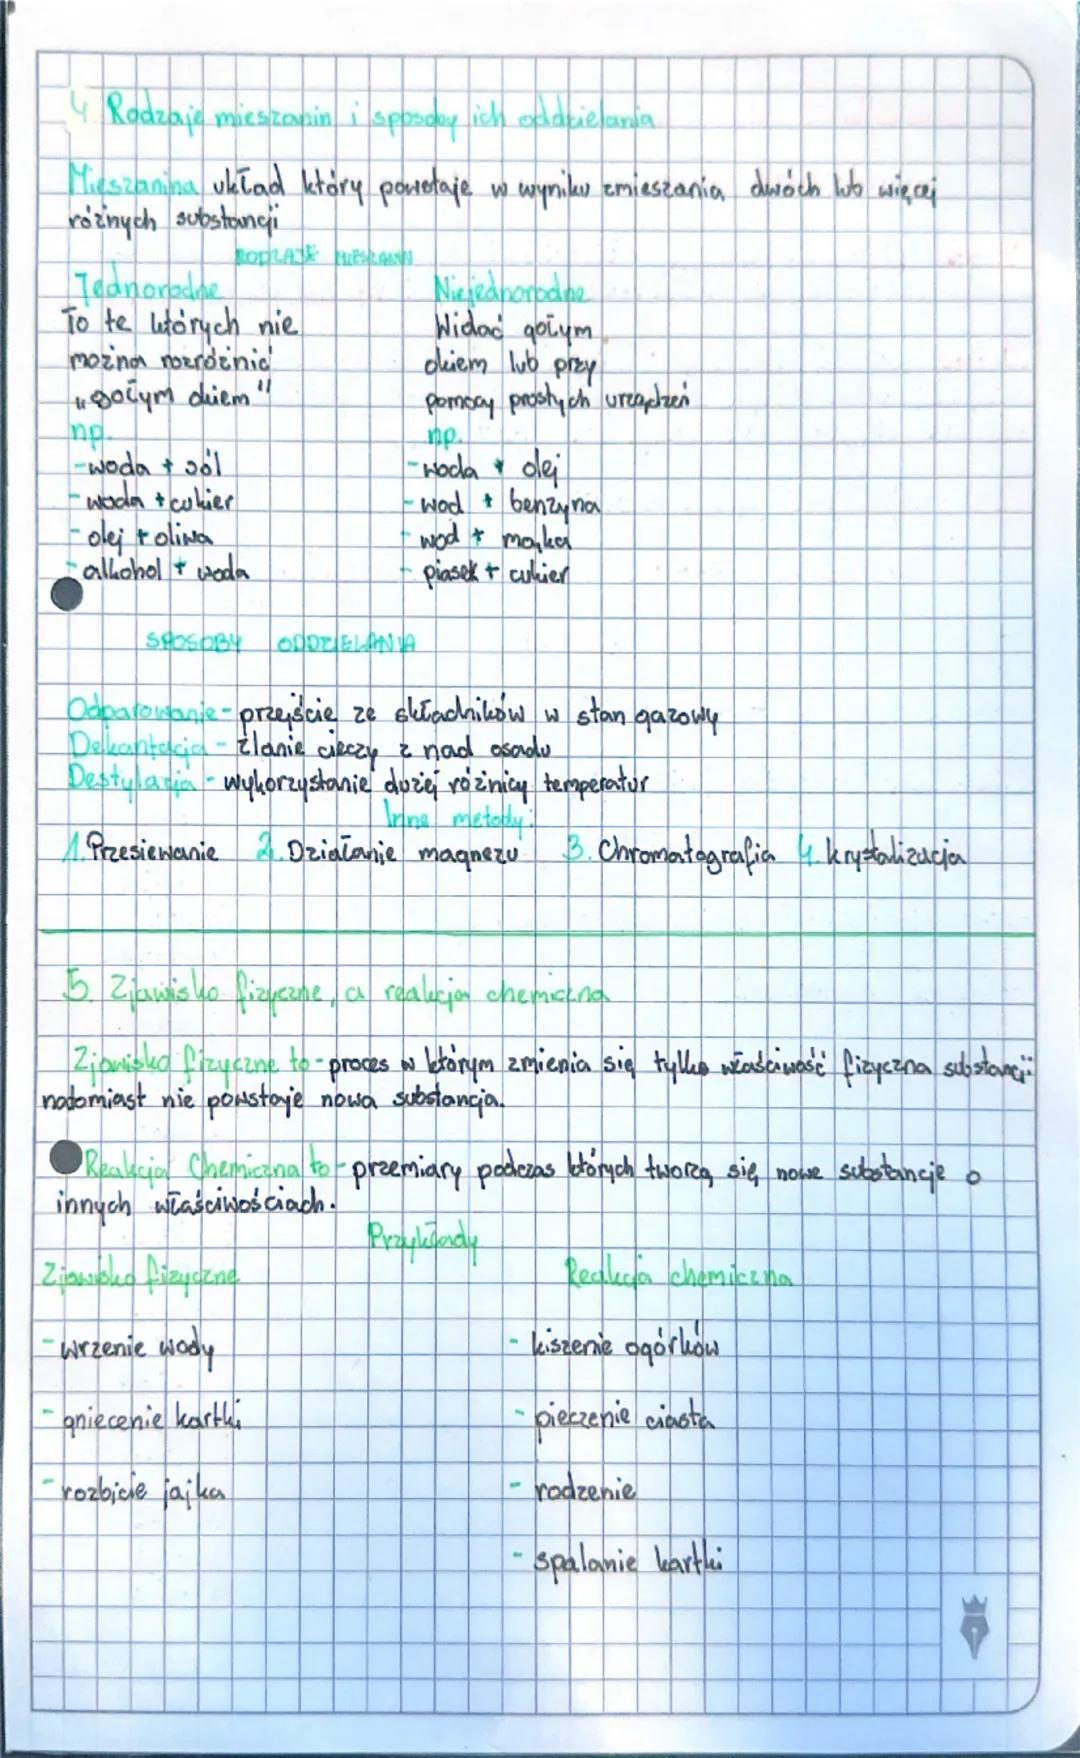 4. Rodzaje mieszanin i sposoby ich oddzielania
Mieszanina układ który powstaje w wyniku zmieszania dwóch lub więcej
różnych substancji
RODZAJE MIESZANIN
Jednorodne
To te których nie
można rozróżnić
„gołym okiem"
np.
-woda + sól
-woda + cukier
-olej + oliwa
-alkohol + woda
Niejednorodne
Widać gołym
okiem lub przy
pomocy prostych urządzeń
np.
-woda + olej
-wod + benzyna
-wod + mąka
-piasek + cukier
SPOSOBY ODDZIELANIA
Odparowanie - przejście ze składników w stan gazowy
Dekantacja - zlanie cieczy z nad osadu
Destylacja - wykorzystanie dużej różnicy temperatur
Inne metody:
1. Przesiewanie 2. Działanie magnezu 3. Chromatografia 4. krystalizacja
5. Zjawisko fizyczne, a reakcja chemiczna
Zjawisko fizyczne to - proces w którym zmienia się tylko właściwość fizyczna substancji
natomiast nie powstaje nowa substancja.
Reakcja Chemiczna to - przemiary podczas których tworzą się nowe substancje o
innych właściwościach.
Przykłady
Zjawisko fizyczne
-wrzenie wody
-gniecenie kartki
-rozbicie jajka
Reakcja chemiczna
- kiszenie ogórków
- pieczenie ciasta
- rodzenie
- spalanie kartki